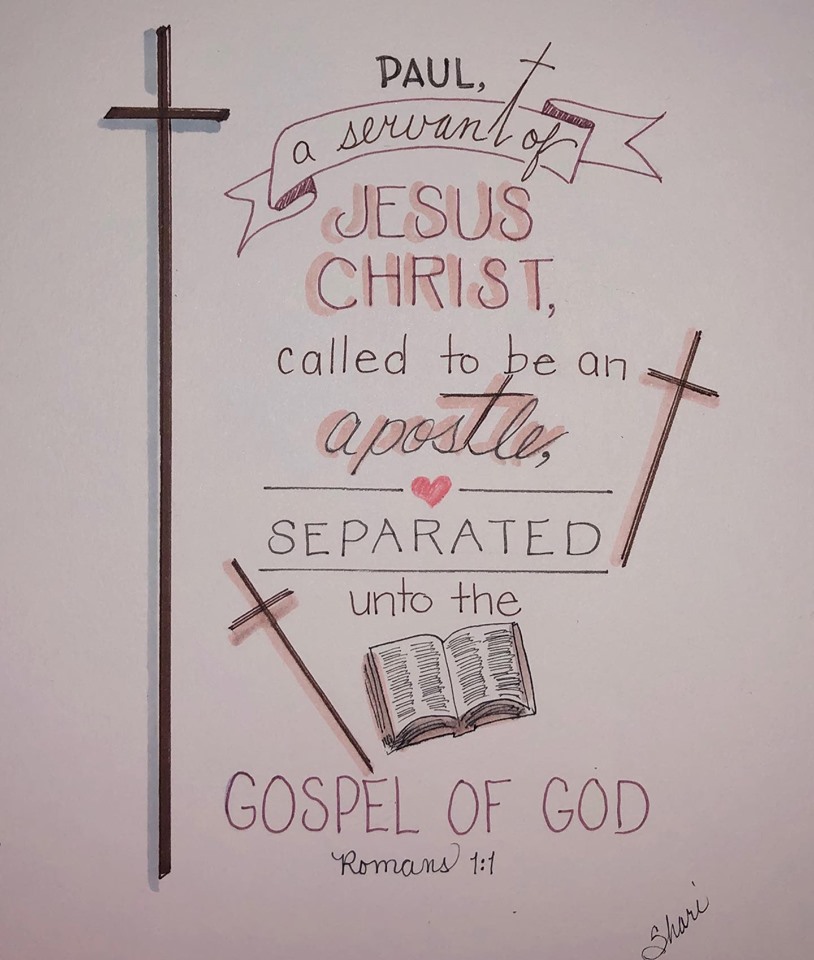 PAUL,
a servant of
JESUS
CHRIST,
called to be an
apostle,
SEPARATED
unto the
GOSPEL OF GOD
Romans 1:1
Shari